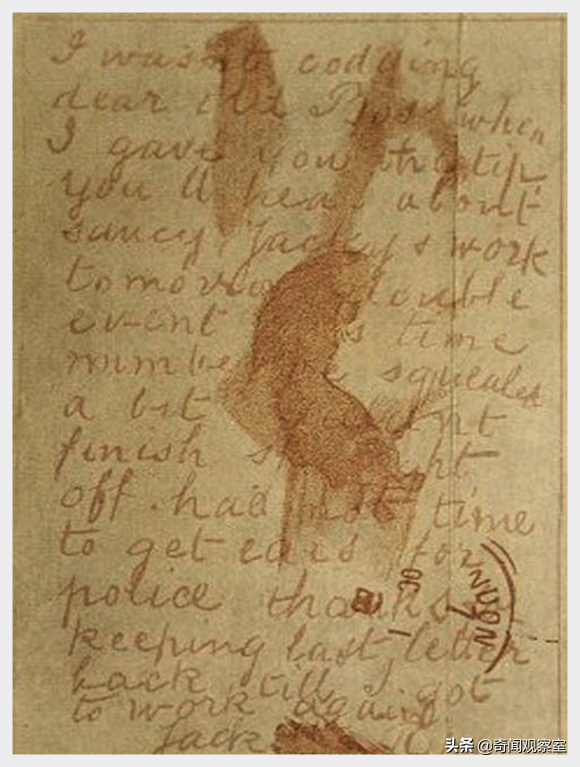 I wasn't codding
dear old Boss when
I gave you the tip
you'll hear about
saucy Jackys work
tomorrow double
event this time
number one squealed
a bit couldnt
finish straight
off. had not time
to get ears for
police thanks
keeping last letter
back till I got
to work again.
Jack
头条 @奇闻观察室